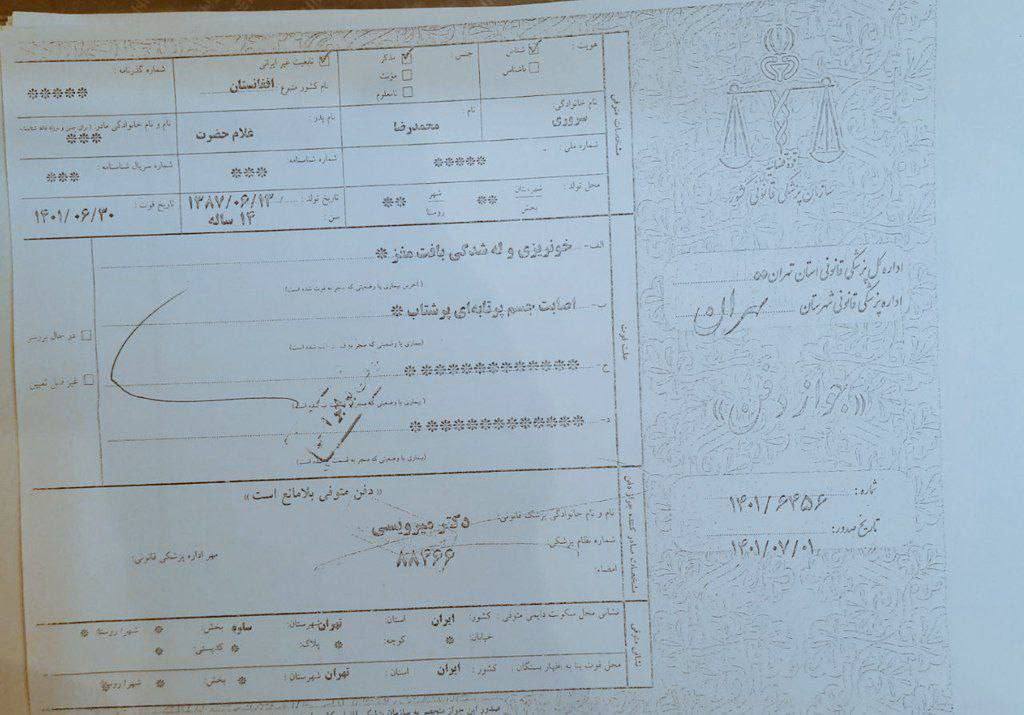 قوه قضائیه
سازمان پزشکی قانونی کشور
اداره کل پزشکی قانونی استان تهران
اداره پزشکی قانونی شهرستان تهران
«جواز دفن»
شماره: ۱۴۰۱/۶۴۵۶
تاریخ صدور: ۱۴۰۱/۰۷/۰۱
مشخصات متوفی
هویت: شناس ناشناس
جنس: مذکر مونث نامعلوم
تابعیت غیر ایرانی
نام کشور متبوع: افغانستان
شماره گذرنامه: *****
نام خانوادگی: سروری
نام: محمدرضا
نام پدر: غلام حضرت
نام و نام خانوادگی مادر: ***
شماره ملی: *****
شماره شناسنامه: ***
شماره سریال شناسنامه: ***
محل تولد: شهرستان بخش ** شهر روستا **
تاریخ تولد: ۱۳۸۷/۰۶/۱۳
سن: ۱۴ ساله
تاریخ فوت: ۱۴۰۱/۰۶/۳۰
علت فوت
الف- خونریزی و له شدگی بافت مغز *
(آخرین بیماری یا وضعیتی که منجر به فوت شده است)
ب- اصابت جسم پرتابه‌ای پرشتاب *
ج- ************ *
د- ************ *
در حال بررسی
غیر قابل تعیین
مشخصات صادر کننده جواز دفن
«دفن متوفی بلامانع است»
نام و نام خانوادگی پزشک قانونی: دکتر میرویسی
شماره نظام پزشکی: ۸۸۴۶۶
امضاء:
مهر اداره پزشکی قانونی:
نشانی متوفی
نشانی محل سکونت دایمی متوفی: کشور: ایران استان: تهران شهرستان: ساوه بخش: * شهر/روستا: *
خیابان: * کوچه: * پلاک: * کدپستی: *
محل فوت بنا به اظهار بستگان: کشور: ایران استان: تهران شهرستان: * بخش: * شهر/روستا: *